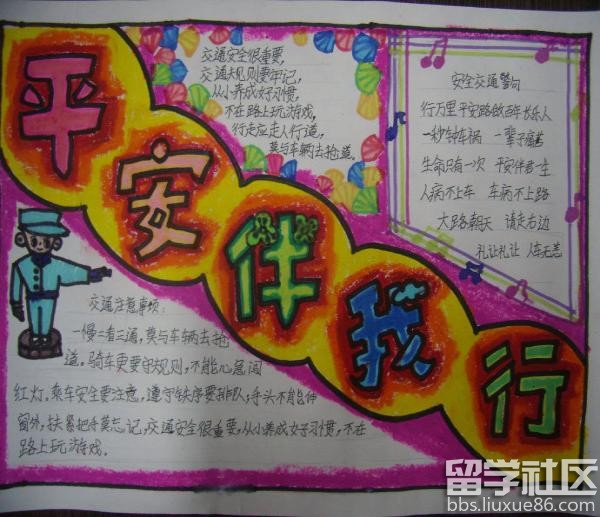 平安伴我行
交通安全很重要,
交通规则要牢记,
从小养成好习惯,
不在路上玩游戏,
行走应走人行道,
莫与车辆去抢道。
安全交通警句
行万里平安路做百年长乐人
一秒钟车祸 一辈子痛苦
生命只有一次 平安伴君一生
人病不上车 车病不上路
大路朝天 请走右边
礼让礼让 人车无恙
交通注意事项:
一慢二看三通,莫与车辆去抢
道。骑车更要守规则,不能心急闯
红灯.乘车安全要注意,遵守秩序要排队,手头不能伸
窗外,扶紧把手莫忘记,交通安全很重要,从小养成好习惯,不在
路上玩游戏.
留学社区
bbs.liuxue86.com